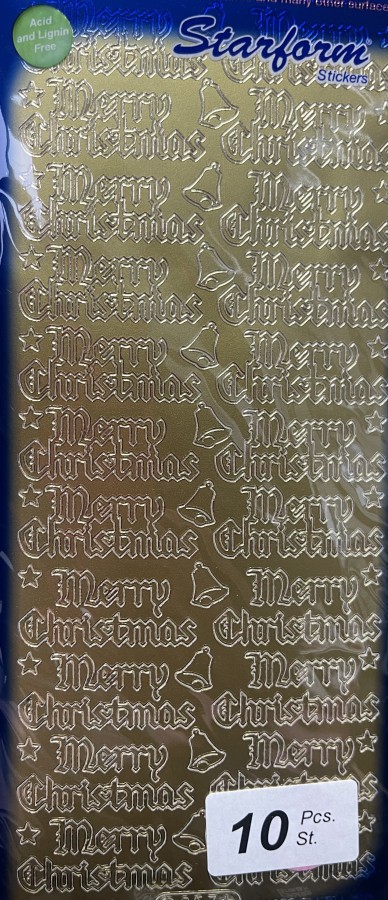 many other surface
Acid
and Lignin
Free
Starform
Stickers
Merry
Christmas
Merry Merry
Christmas Christmas
Merry Merry
Christmas Christmas
Merry Merry
Christmas Christmas
Merry Merry
Christmas Christmas
Merry Merry
Christmas Christmas
Merry Merry
Christmas Christmas
Merry Merry
Christmas Christmas
Merry Merry
Christmas Christmas
Merry Merry
Christmas
Merry
Christmas
10 Pcs.
St.